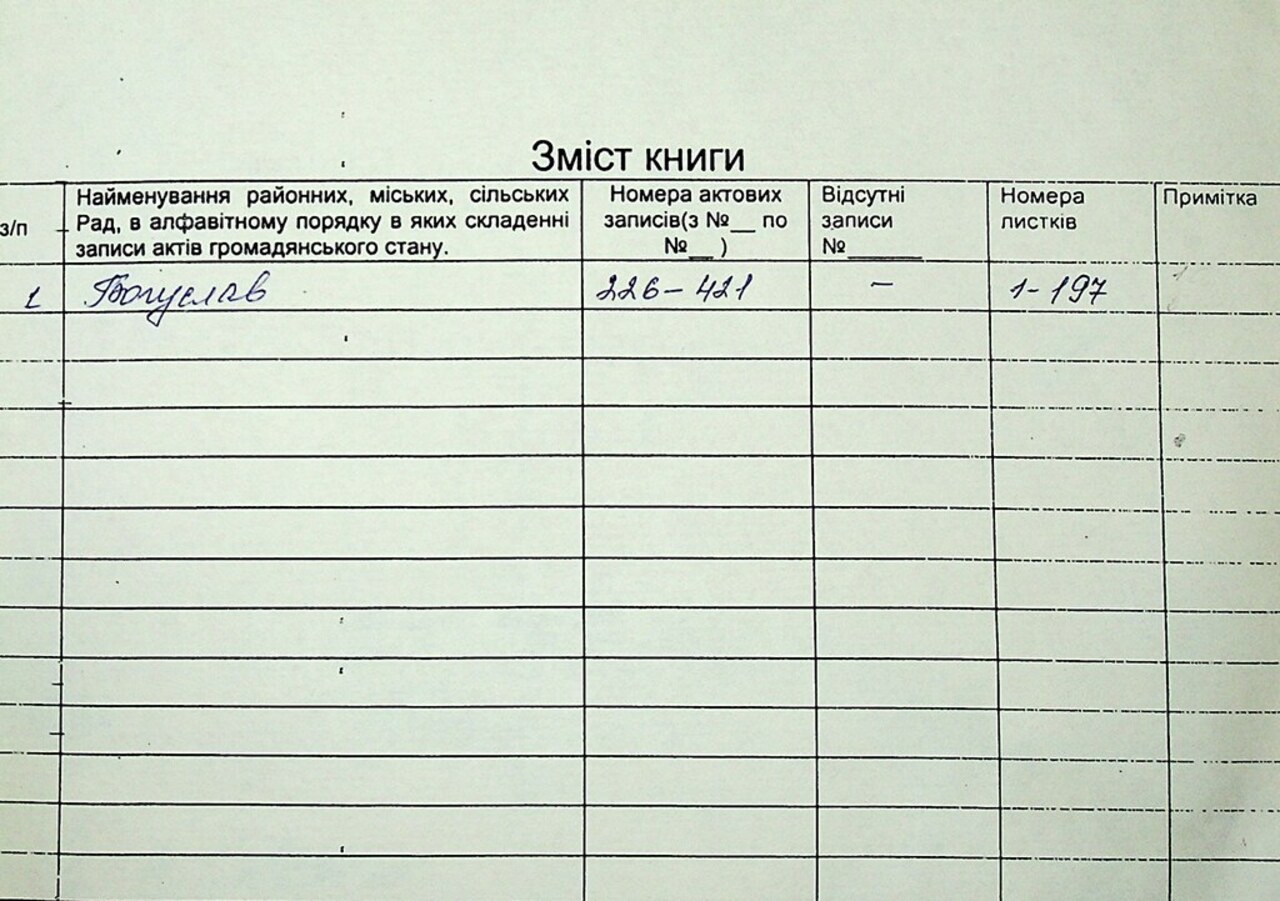 Зміст книги
з/п
Найменування районних, міських, сільських
Рад, в алфавітному порядку в яких складенні
записи актів громадянського стану.
Номера актових
записів(з №__ по
№__ )
Відсутні
записи
№______
Номера
листків
Примітка
1 Богуслав 226-421 - 1-197